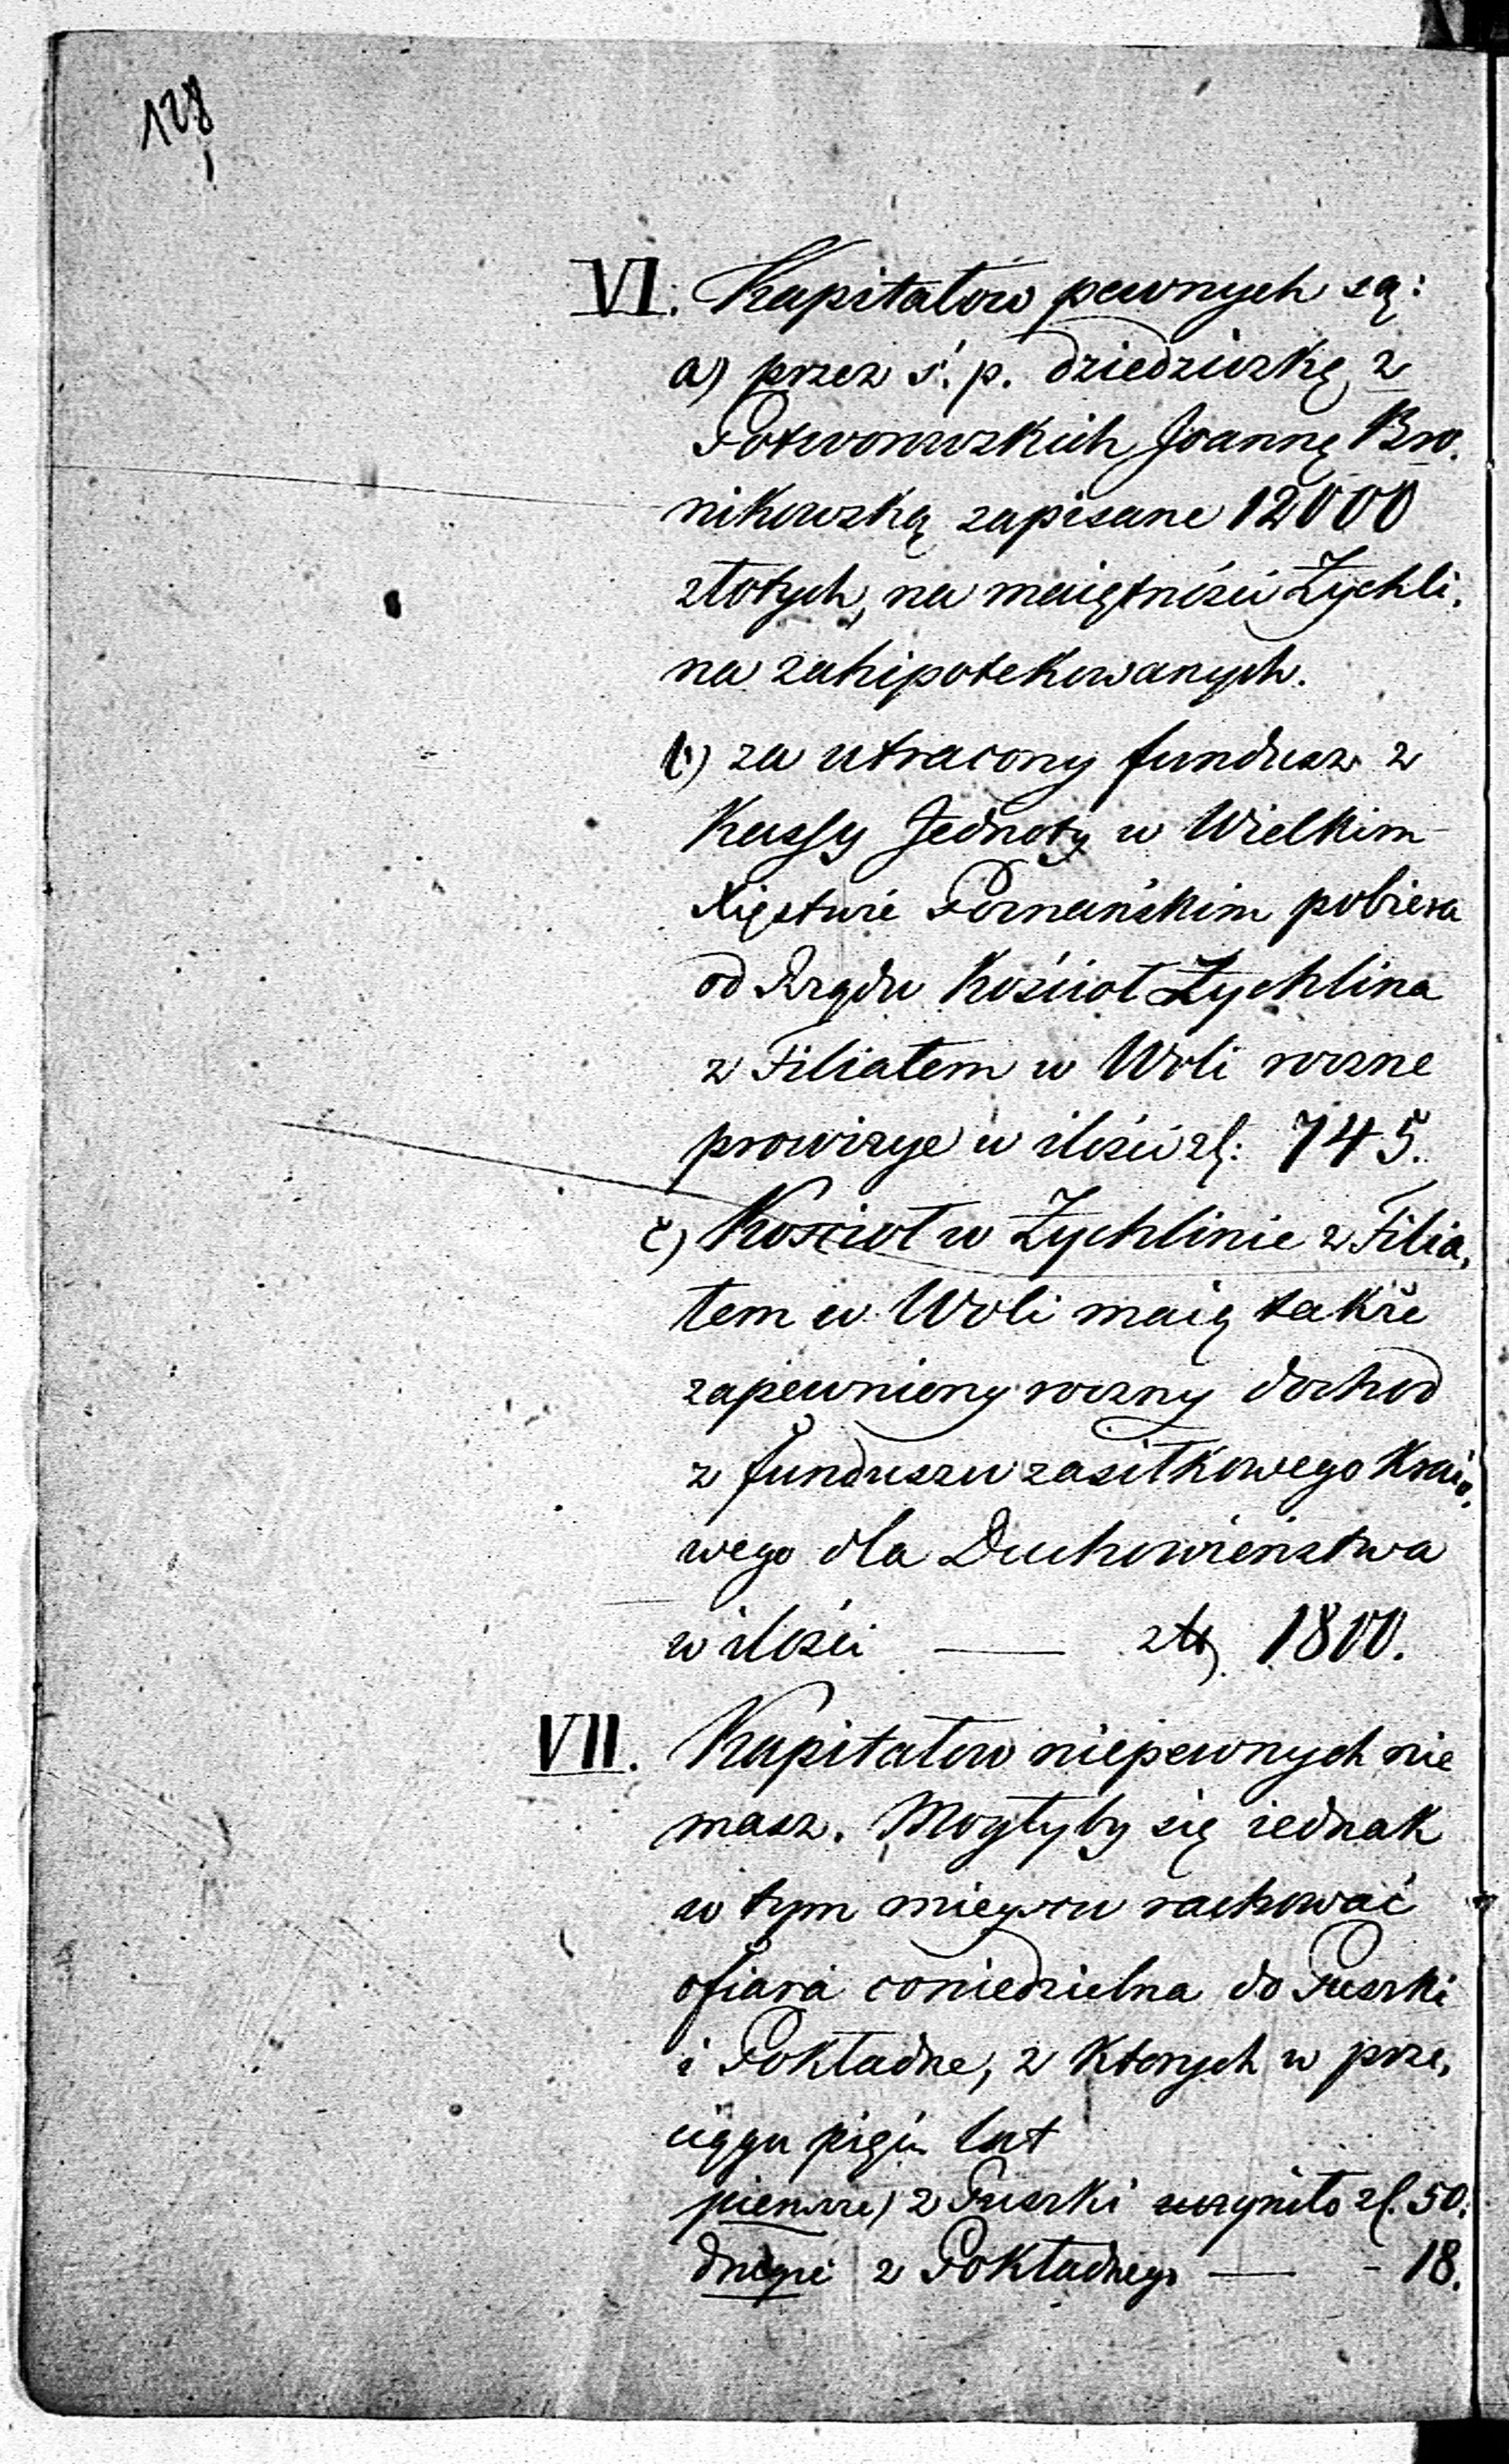 128
VI. Kapitałów pewnych są:
a) przez ś. p. dziedziczkę z
Potworowskich Joannę Bro,
nikowską zapisane 12000
złotych, na maiętności Żychli,
na zahipotekowanych.
b) za utracony fundusz z
Kassy Jednoty w Wielkim
Xięstwie Poznańskim pobiera
od Rządu Kościoł Żychlina
z Filiałem w Woli roczne
prowizye w ilości zł: 745.
c) Kościoł w Żychlinie z Filia,
łem w Woli maią także
zapewniony roczny dochod
z funduszu zasiłkowego Kraio,
wego dla Duchowieństwa
w ilości — złt. 1800.
VII. Kapitałow niepewnych nie
masz. Mogłyby się iednak
w tym mieyscu rachować
ofiara coniedzielna do Puszki
i Pokładne, z ktorych w prze,
ciągu pięciu lat
pierwsze) z Puszki uczyniło zł. 50.
drugie z Pokładnego — - 18.